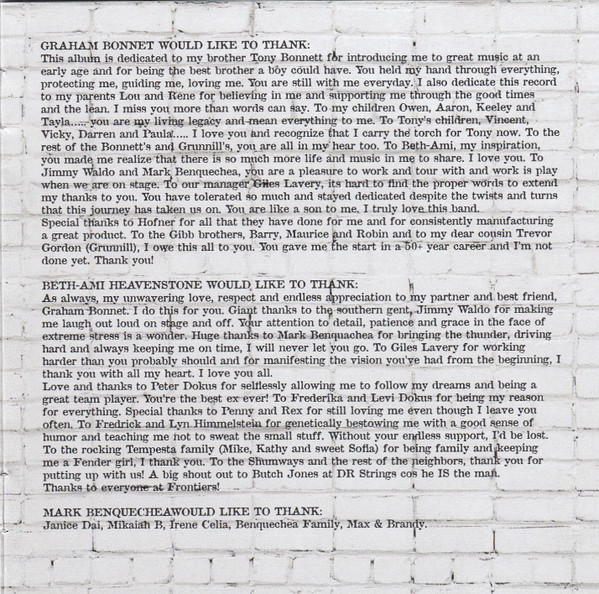 GRAHAM BONNET WOULD LIKE TO THANK:
This album is dedicated to my brother Tony Bonnett for introducing me to great music at an
early age and for being the best brother a boy could have. You held my hand through everything,
protecting me, guiding me, loving me. You are still with me everyday. I also dedicate this record
to my parents Lou and Rene for believing in me and supporting me through the good times
and the lean. I miss you more than words can say. To my children Owen, Aaron, Keeley and
Tayla..... you are my living legacy and mean everything to me. To Tony's children, Vincent,
Vicky, Darren and Paula..... I love you and recognize that I carry the torch for Tony now. To the
rest of the Bonnett's and Grunnill's, you are all in my hear too. To Beth-Ami, my inspiration,
you made me realize that there is so much more life and music in me to share. I love you. To
Jimmy Waldo and Mark Benquechea, you are a pleasure to work and tour with and work is play
when we are on stage. To our manager Giles Lavery, its hard to find the proper words to extend
my thanks to you. You have tolerated so much and stayed dedicated despite the twists and turns
that this journey has taken us on. You are like a son to me. I truly love this band.
Special thanks to Hofner for all that they have done for me and for consistently manufacturing
a great product. To the Gibb brothers, Barry, Maurice and Robin and to my dear cousin Trevor
Gordon (Grunnill), I owe this all to you. You gave me the start in a 50+ year career and I'm not
done yet. Thank you!
BETH-AMI HEAVENSTONE WOULD LIKE TO THANK:
As always, my unwavering love, respect and endless appreciation to my partner and best friend,
Graham Bonnet. I do this for you. Giant thanks to the southern gent, Jimmy Waldo for making
me laugh out loud on stage and off. Your attention to detail, patience and grace in the face of
extreme stress is a wonder. Huge thanks to Mark Benquachea for bringing the thunder, driving
hard and always keeping me on time, I will never let you go. To Giles Lavery for working
harder than you probably should and for manifesting the vision you've had from the beginning, I
thank you with all my heart. I love you all.
Love and thanks to Peter Dokus for selflessly allowing me to follow my dreams and being a
great team player. You're the best ex ever! To Frederika and Levi Dokus for being my reason
for everything. Special thanks to Penny and Rex for still loving me even though I leave you
often. To Fredrick and Lyn Himmelstein for genetically bestowing me with a good sense of
humor and teaching me not to sweat the small stuff. Without your endless support, I'd be lost.
To the rocking Tempesta family (Mike, Kathy and sweet Sofia) for being family and keeping
me a Fender girl, I thank you. To the Shumways and the rest of the neighbors, thank you for
putting up with us! A big shout out to Butch Jones at DR Strings cos he IS the man.
Thanks to everyone at Frontiers!
MARK BENQUECHEAWOULD LIKE TO THANK:
Janice Dai, Mikaiah B, Irene Celia, Benquechea Family, Max & Brandy.